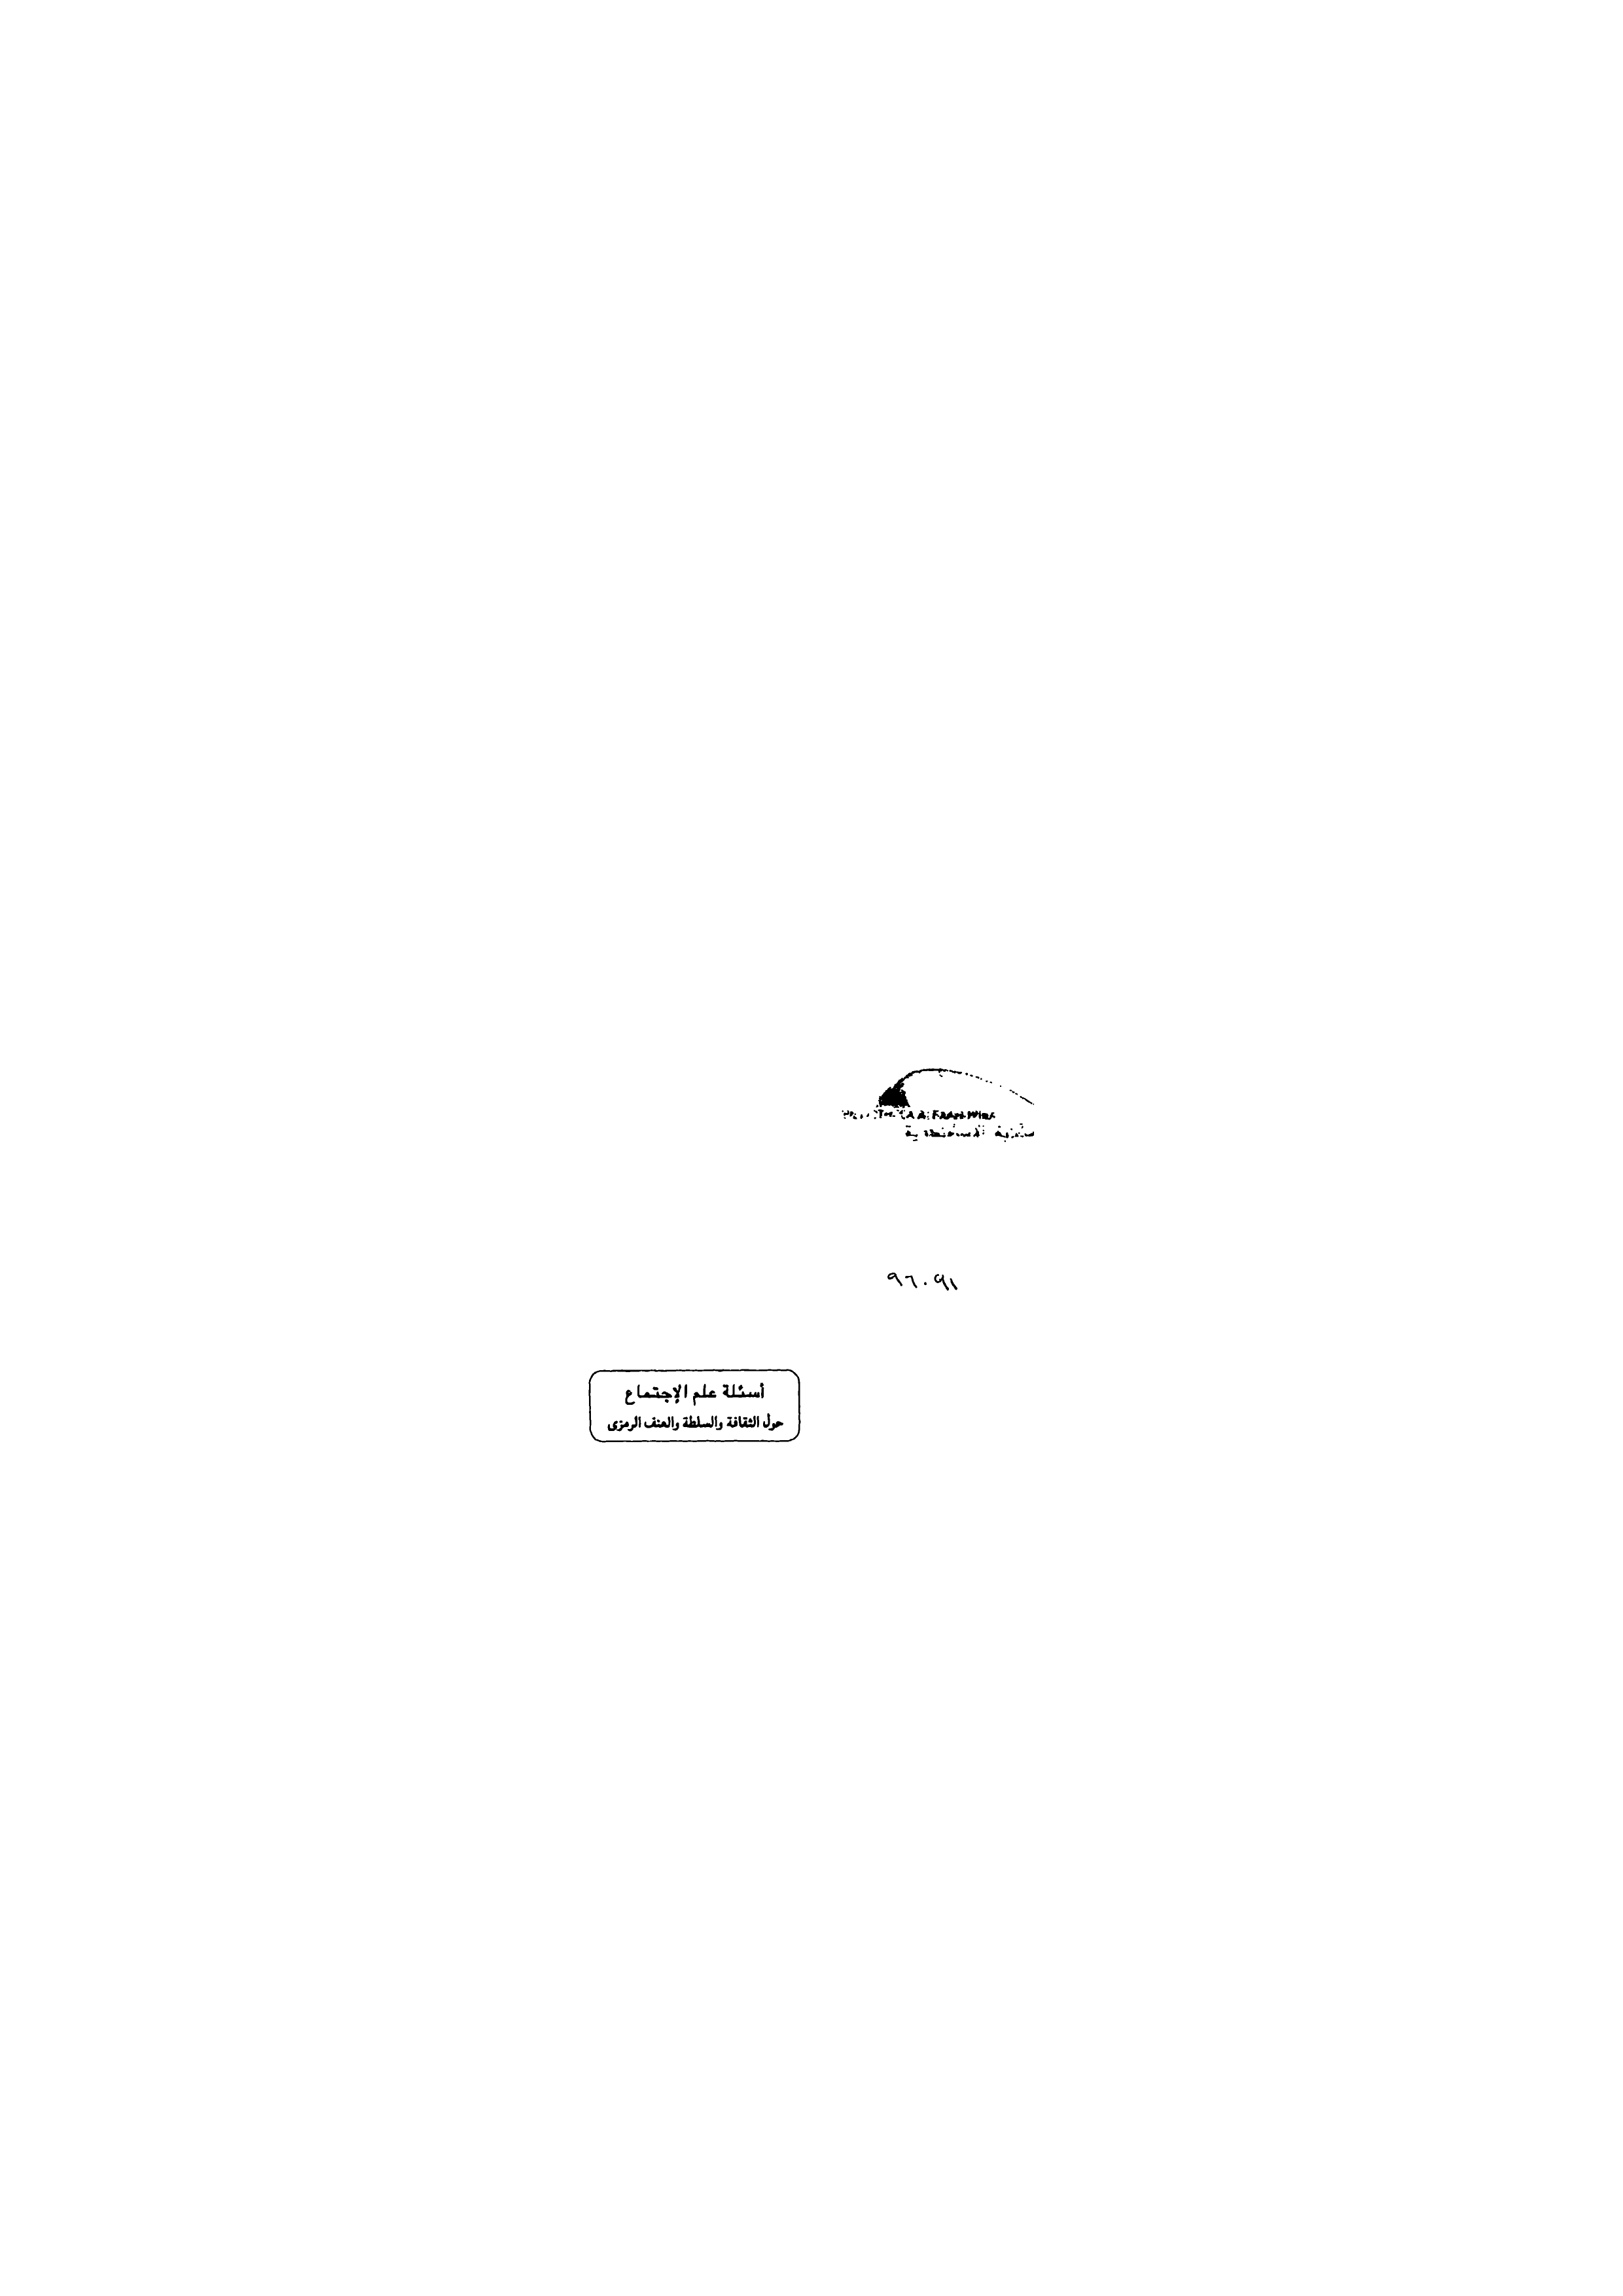 ٩٦٠٩١
أسئلة علم الإجتماع
حول الثقافة والسلطة والعنف الرمزى